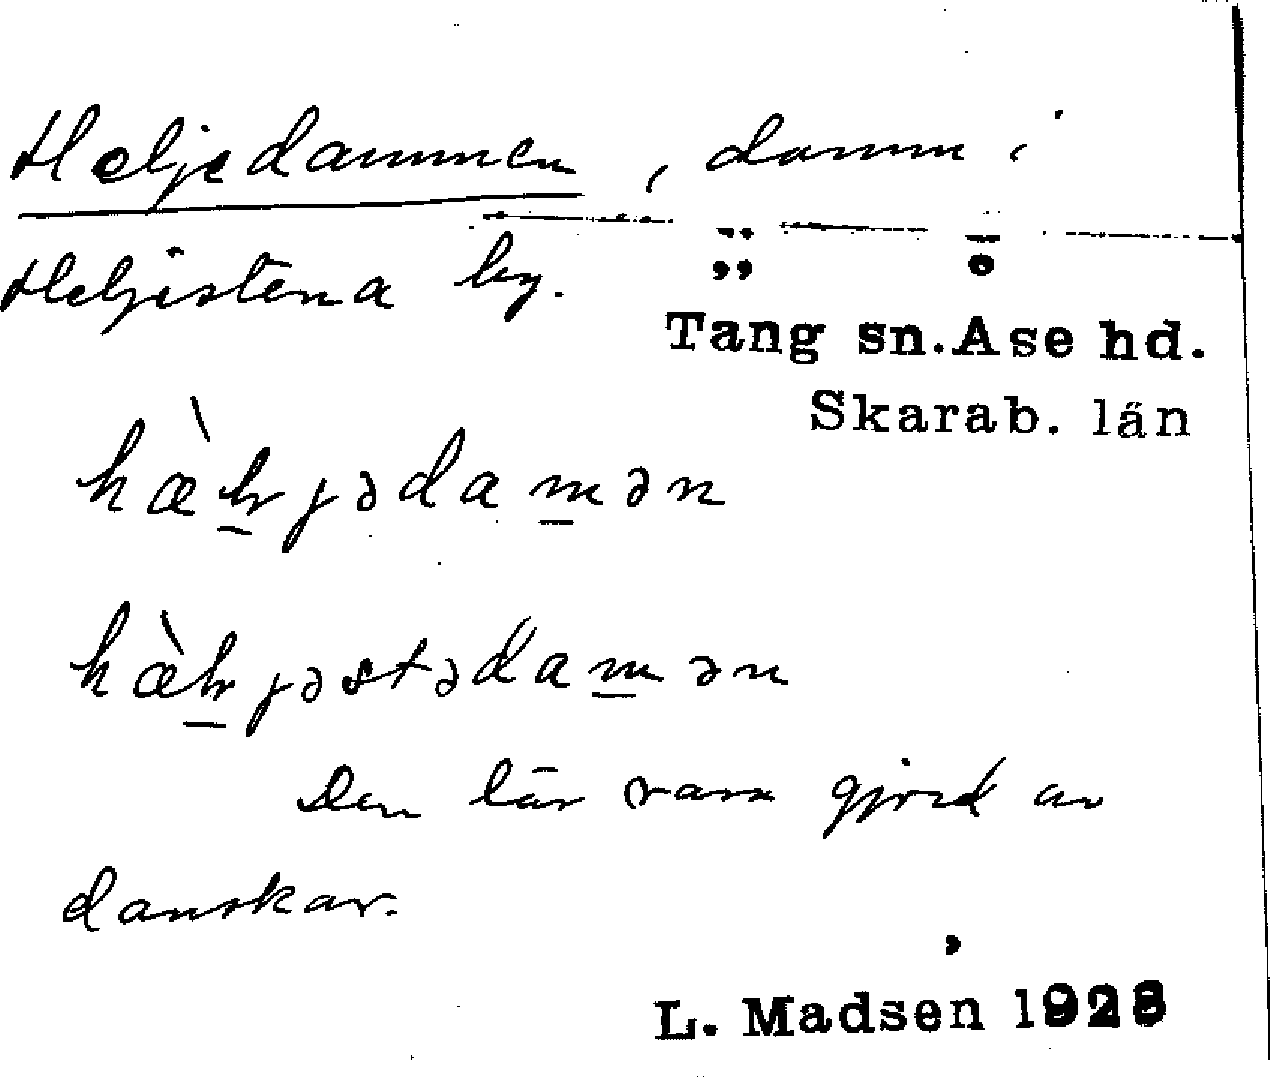 Heljedammen, damm i
Heljestena by.
Täng sn. Åse hd.
Skarab. län
hæ̀l̠jədam̠ən
hæ̀l̠jəstədam̠ən
Den lär vara gjord av
danskar.
L. Madsen 1928